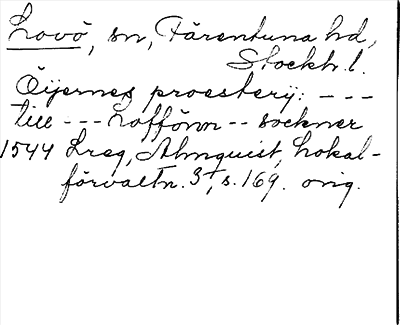 Lovö, sn, Färentuna hd,
Stockh. l.
Öijernes proesterij: - - -
till - - - Loffönn - - sockner
1544 Lreg, Almquist, Lokal-
förvaltn. 3, s. 169. orig.